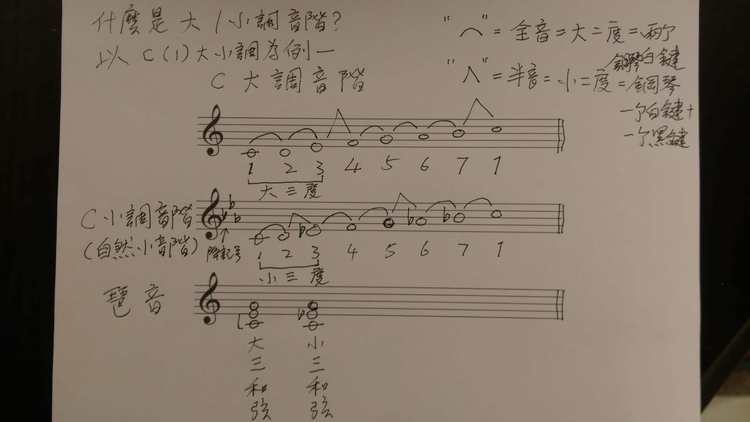 什麼是大/小調音階?
以C(1)大小調為例—
C大調音階
"⌒"=全音=大二度=兩个
鋼琴白鍵
"∧"=半音=小二度=鋼琴
一个白鍵+
一个黑鍵
1 2 3 4 5 6 7 1
大三度
C小調音階
(自然小音階)
降記号
1 2 3 4 5 6 7 1
小三度
琶音
大三和弦
小三和弦